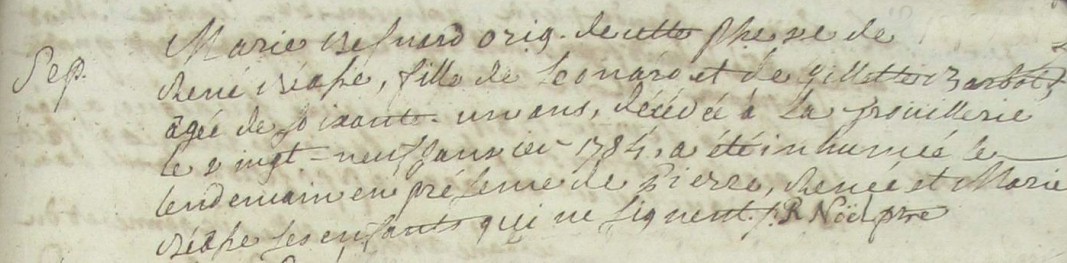 Marie Besnard orig. de cette phe ve de
Sep. René , fille de Leonard et de Gillette Barbot,
âgée de soixante-un ans, décédée à La
le vingt-neuf janvier 1784, a été inhumée le
lendemain en présence de Pierre, Renée et Marie
ses enfants qui ne signent. R Noël ptre